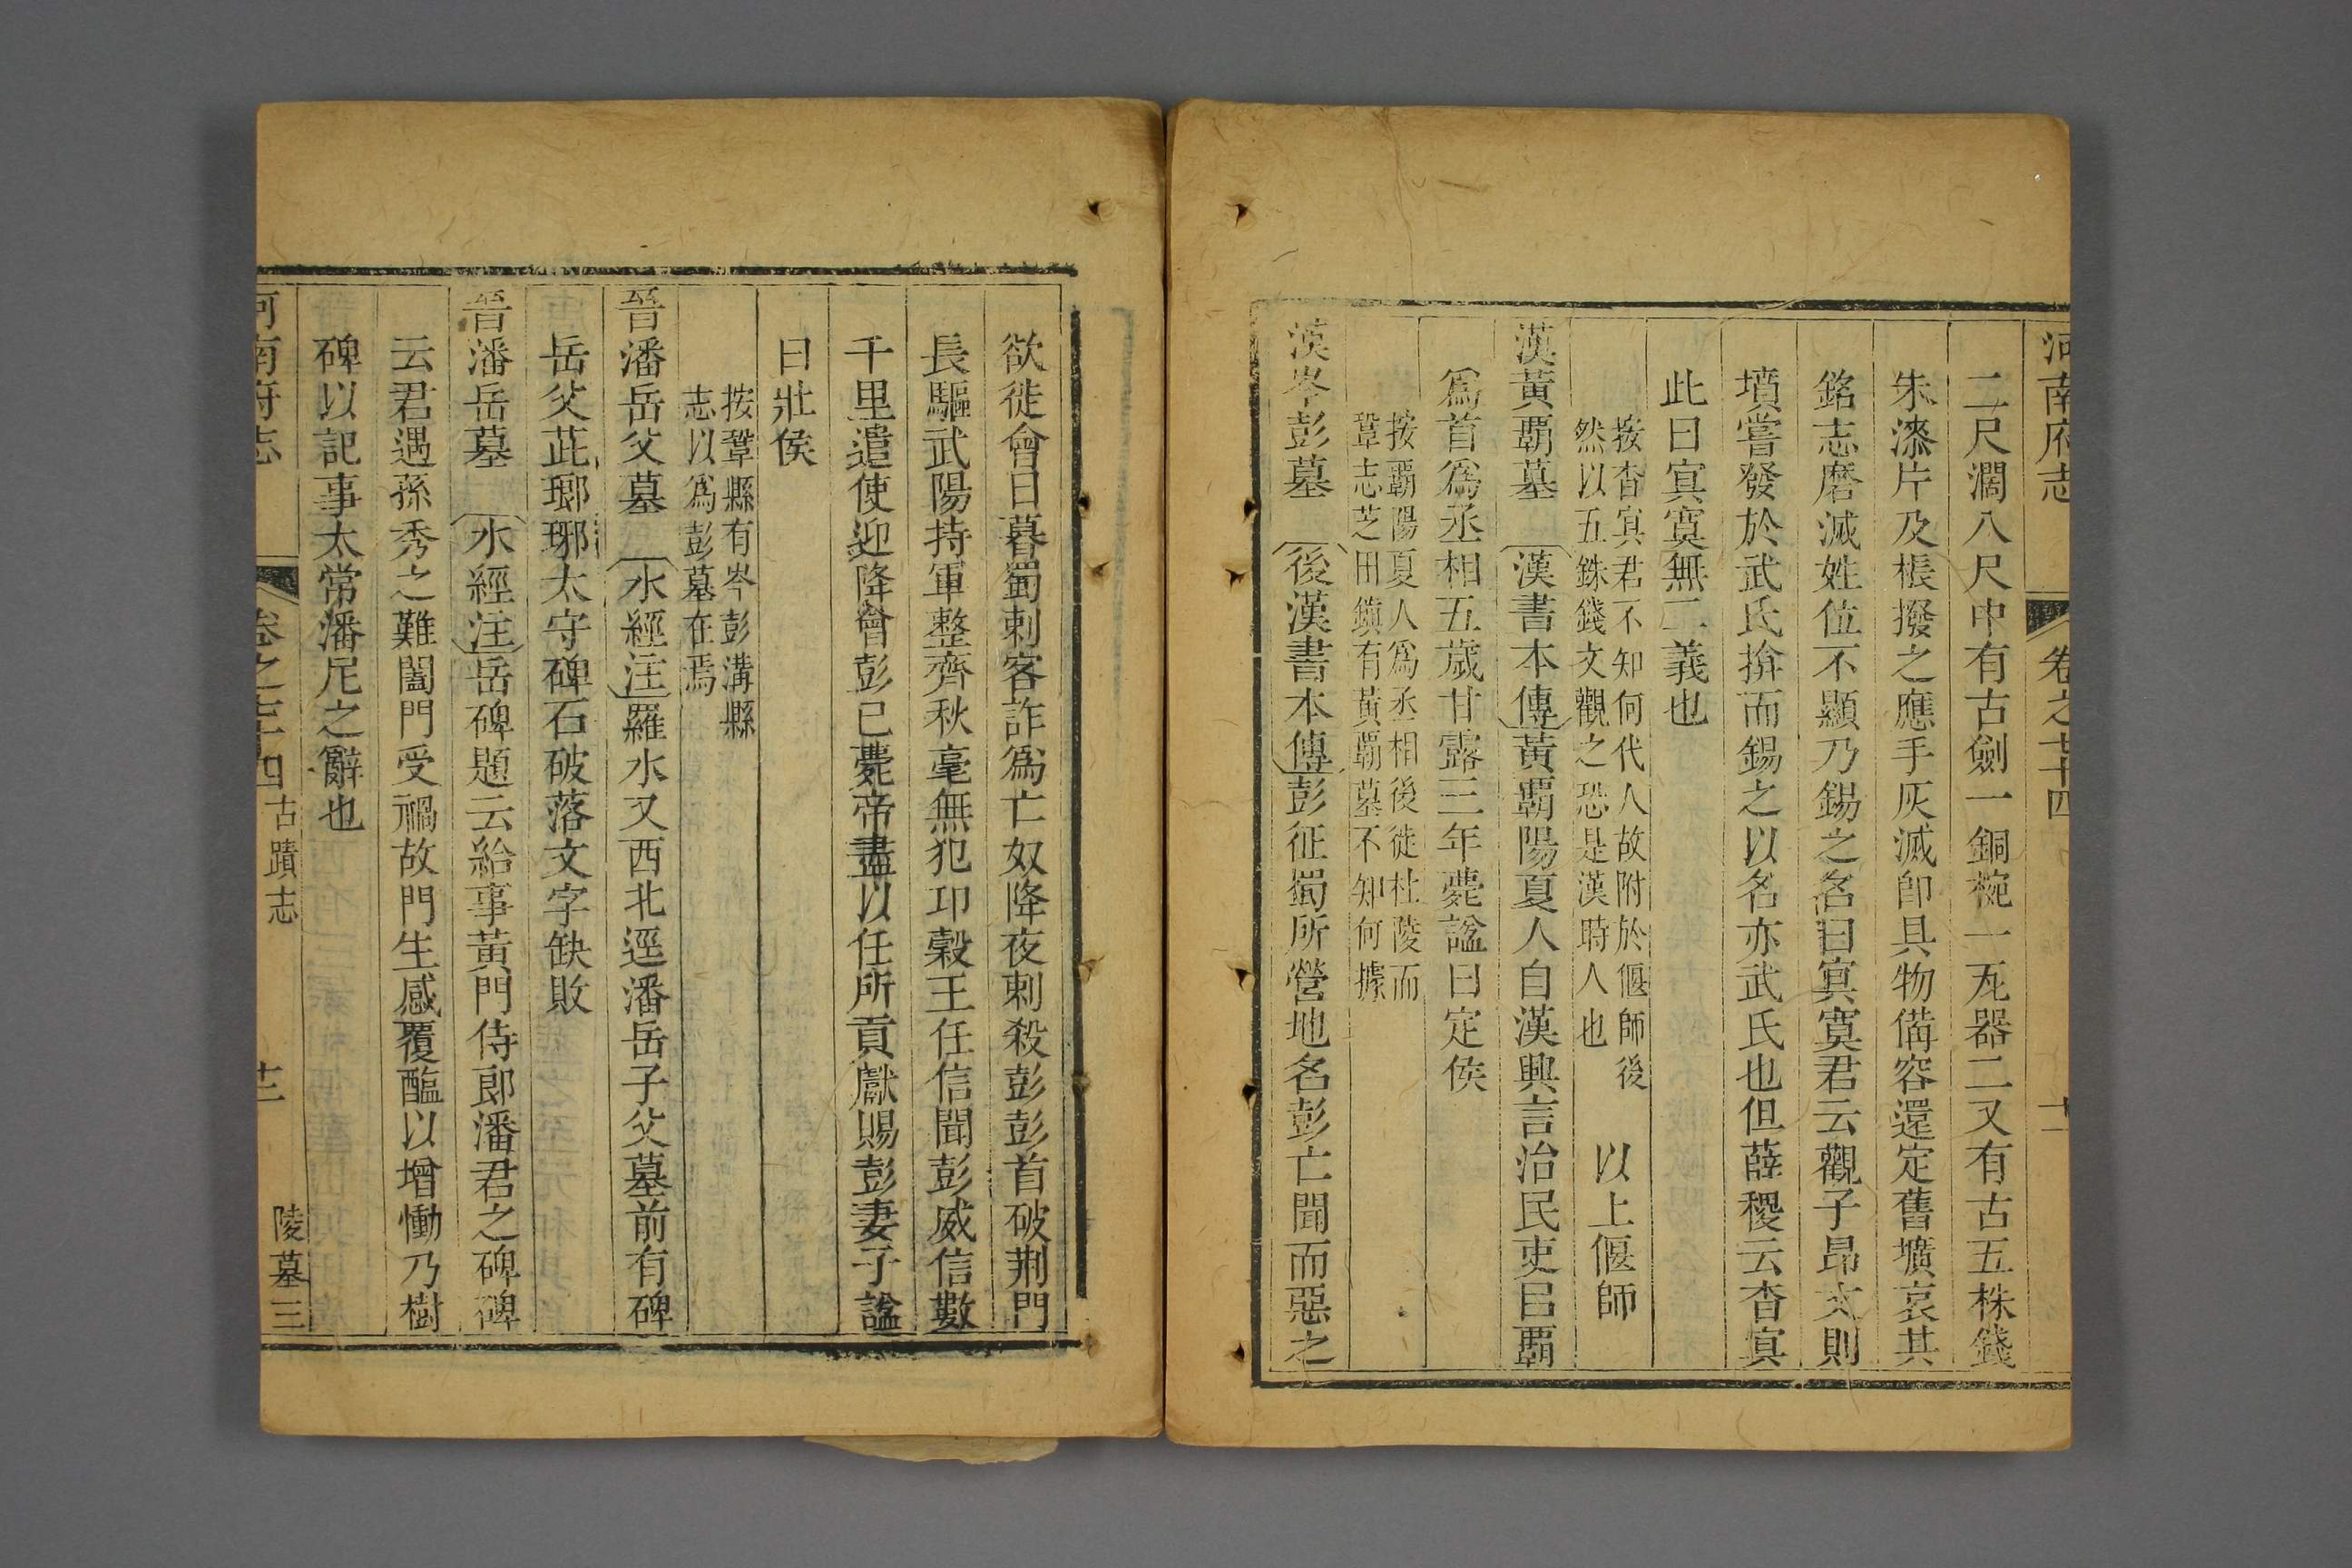 河南府志 卷之七十四 十一
二尺濶八尺中有古劍一銅椀一瓦器二又有古五株錢
朱漆片及棖撥之應手灰滅卽具物備容還定舊壙哀其
銘志磨滅姓位不顯乃錫之名曰冥寞君云觀子昂文則
墳嘗發於武氏揜而錫之以名亦武氏也但薛稷云杳冥
此曰冥寞無二義也
按杳冥君不知何代人故附於偃師後
然以五銖錢文觀之恐是漢時人也
以上偃師
漢黃覇墓 漢書本傳黃覇陽夏人自漢興言治民吏㠯覇
爲首爲丞相五歲甘露三年薨諡曰定侯
按覇陽夏人爲丞相後徙杜陵而
鞏志芝田鎮有黃覇墓不知何據
漢岑彭墓 後漢書本傳彭征蜀所營地名彭亡聞而惡之
欲徙會日暮蜀刺客詐爲亡奴降夜刺殺彭彭首破荆門
長驅武陽持軍整齊秋毫無犯邛穀王任信聞彭威信數
千里遣使迎降會彭已薨帝盡以任所貢獻賜彭妻子諡
曰壯侯
按鞏縣有岑彭溝縣
志以爲彭墓在焉
晉潘岳父墓 水經注羅水又西北逕潘岳子父墓前有碑
岳父茈瑯琊太守碑石破落文字缺敗
晉潘岳墓 水經注岳碑題云給事黃門侍郎潘君之碑碑
云君遇孫秀之難闔門受禍故門生感覆醢以增慟乃樹
碑以記事太常潘尼之辭也
河南府志 卷之七十四 古蹟志 十二 陵墓三